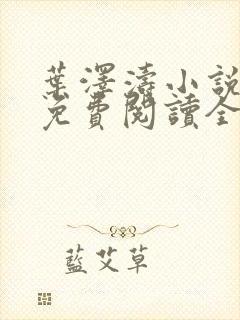 葉澤濤小說
免費閱讀全
藍艾草